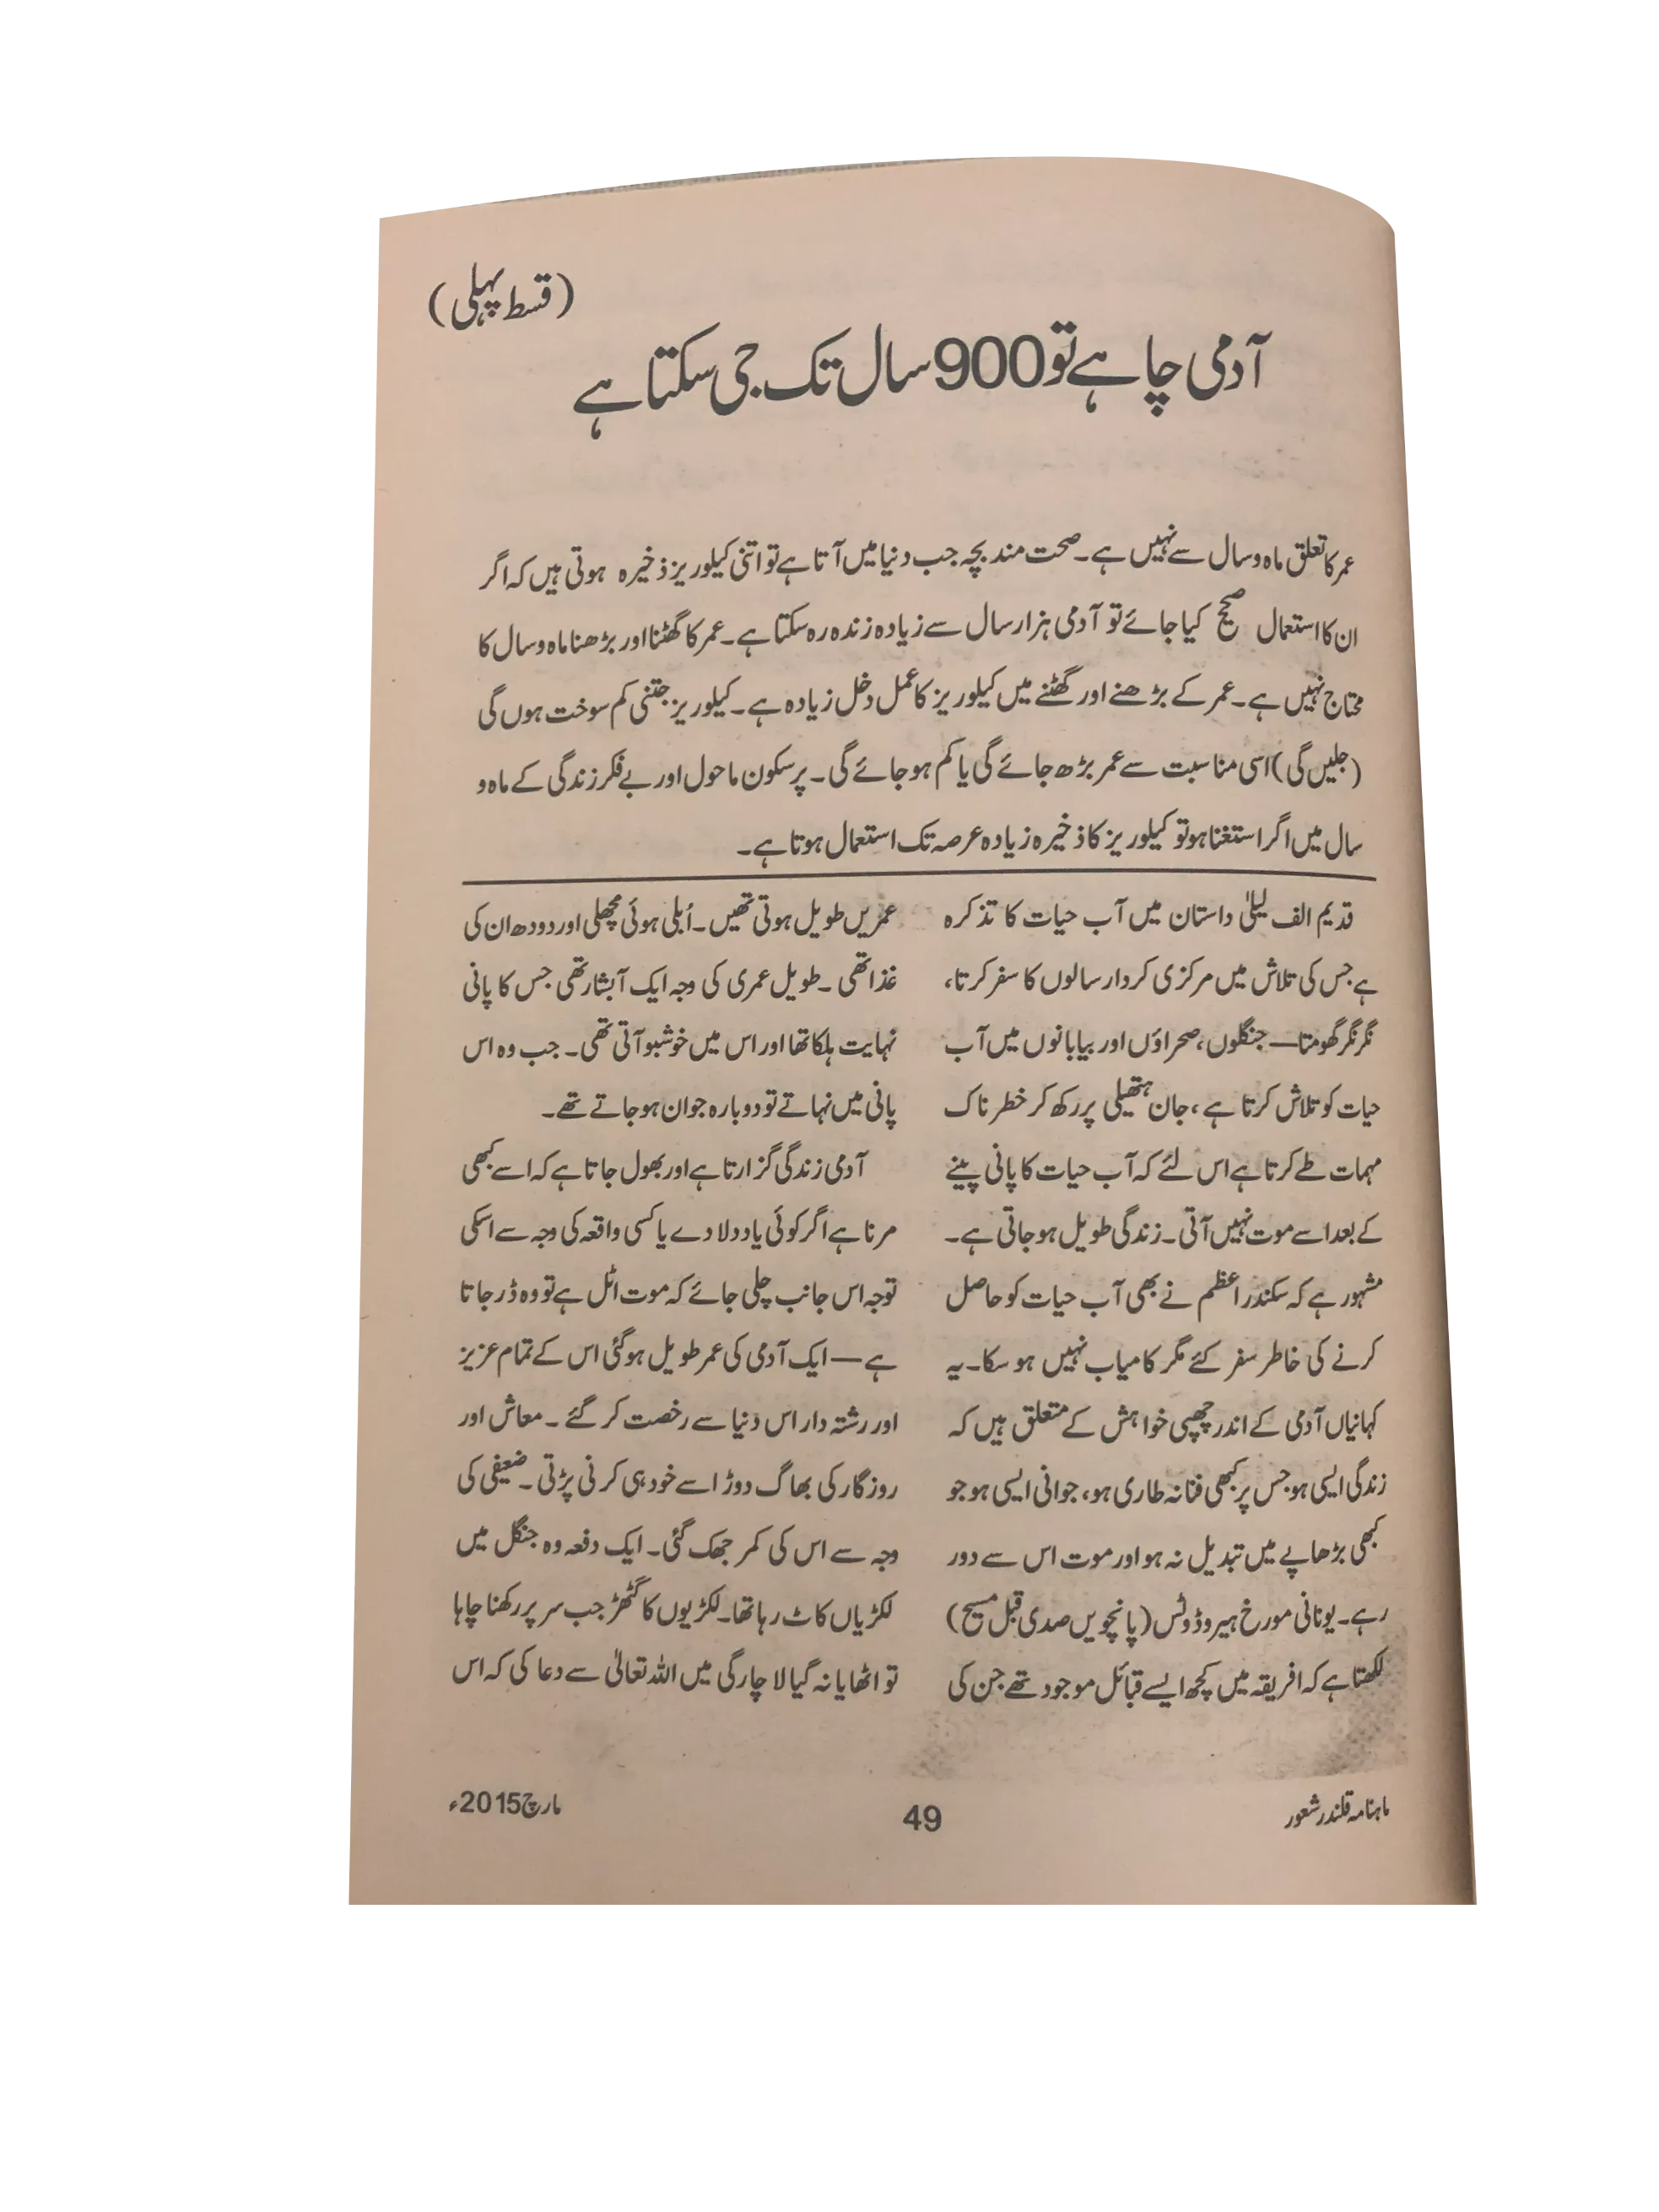 (قسط پہلی)
آدمی چاہے تو 900 سال تک جی سکتا ہے
عمر کا تعلق ماہ و سال سے نہیں ہے۔ صحت مند بچہ جب دنیا میں آتا ہے تو اتنی کیلوریز ذخیرہ ہوتی ہیں کہ اگر
ان کا استعمال صحیح کیا جائے تو آدمی ہزار سال سے زیادہ زندہ رہ سکتا ہے۔ عمر کا گھٹنا اور بڑھنا ماہ و سال کا
محتاج نہیں ہے۔ عمر کے بڑھنے اور گھٹنے میں کیلوریز کا عمل دخل زیادہ ہے۔ کیلوریز جتنی کم سوخت ہوں گی
(جلیں گی) اسی مناسبت سے عمر بڑھ جائے گی یا کم ہو جائے گی۔ پرسکون ماحول اور بے فکر زندگی کے ماہ و
سال میں اگر استغنا ہو تو کیلوریز کا ذخیرہ زیادہ عرصہ تک استعمال ہوتا ہے۔
قدیم الف لیلیٰ داستان میں آب حیات کا تذکرہ
ہے جس کی تلاش میں مرکزی کردار سالوں کا سفر کرتا،
نگر نگر گھومتا — جنگلوں، صحراؤں اور بیابانوں میں آب
حیات کو تلاش کرتا ہے، جان ہتھیلی پر رکھ کر خطرناک
مہمات طے کرتا ہے اس لئے کہ آب حیات کا پانی پینے
کے بعد اسے موت نہیں آتی۔ زندگی طویل ہو جاتی ہے۔
مشہور ہے کہ سکندر اعظم نے بھی آب حیات کو حاصل
کرنے کی خاطر سفر کئے مگر کامیاب نہیں ہو سکا۔ یہ
کہانیاں آدمی کے اندر چھپی خواہش کے متعلق ہیں کہ
زندگی ایسی ہو جس پر کبھی فنا نہ طاری ہو، جوانی ایسی ہو جو
کبھی بڑھاپے میں تبدیل نہ ہو اور موت اس سے دور
رہے۔ یونانی مورخ ہیروڈوٹس (پانچویں صدی قبل مسیح)
لکھتا ہے کہ افریقہ میں کچھ ایسے قبائل موجود تھے جن کی
عمریں طویل ہوتی تھیں۔ اُبلی ہوئی مچھلی اور دودھ ان کی
غذا تھی۔ طویل عمری کی وجہ ایک آبشار تھی جس کا پانی
نہایت ہلکا تھا اور اس میں خوشبو آتی تھی۔ جب وہ اس
پانی میں نہاتے تو دوبارہ جوان ہو جاتے تھے۔
آدمی زندگی گزارتا ہے اور بھول جاتا ہے کہ اسے کبھی
مرنا ہے اگر کوئی یاد دلا دے یا کسی واقعہ کی وجہ سے اسکی
توجہ اس جانب چلی جائے کہ موت اٹل ہے تو وہ ڈر جاتا
ہے — ایک آدمی کی عمر طویل ہو گئی اس کے تمام عزیز
اور رشتہ دار اس دنیا سے رخصت کر گئے۔ معاش اور
روزگار کی بھاگ دوڑ اسے خود ہی کرنی پڑتی۔ ضعیفی کی
وجہ سے اس کی کمر جھک گئی۔ ایک دفعہ وہ جنگل میں
لکڑیاں کاٹ رہا تھا۔ لکڑیوں کا گٹھڑ جب سر پر رکھنا چاہا
تو اٹھایا نہ گیا لاچارگی میں اللہ تعالیٰ سے دعا کی کہ اس
ماہنامہ قلندر شعور
49
مارچ 2015ء